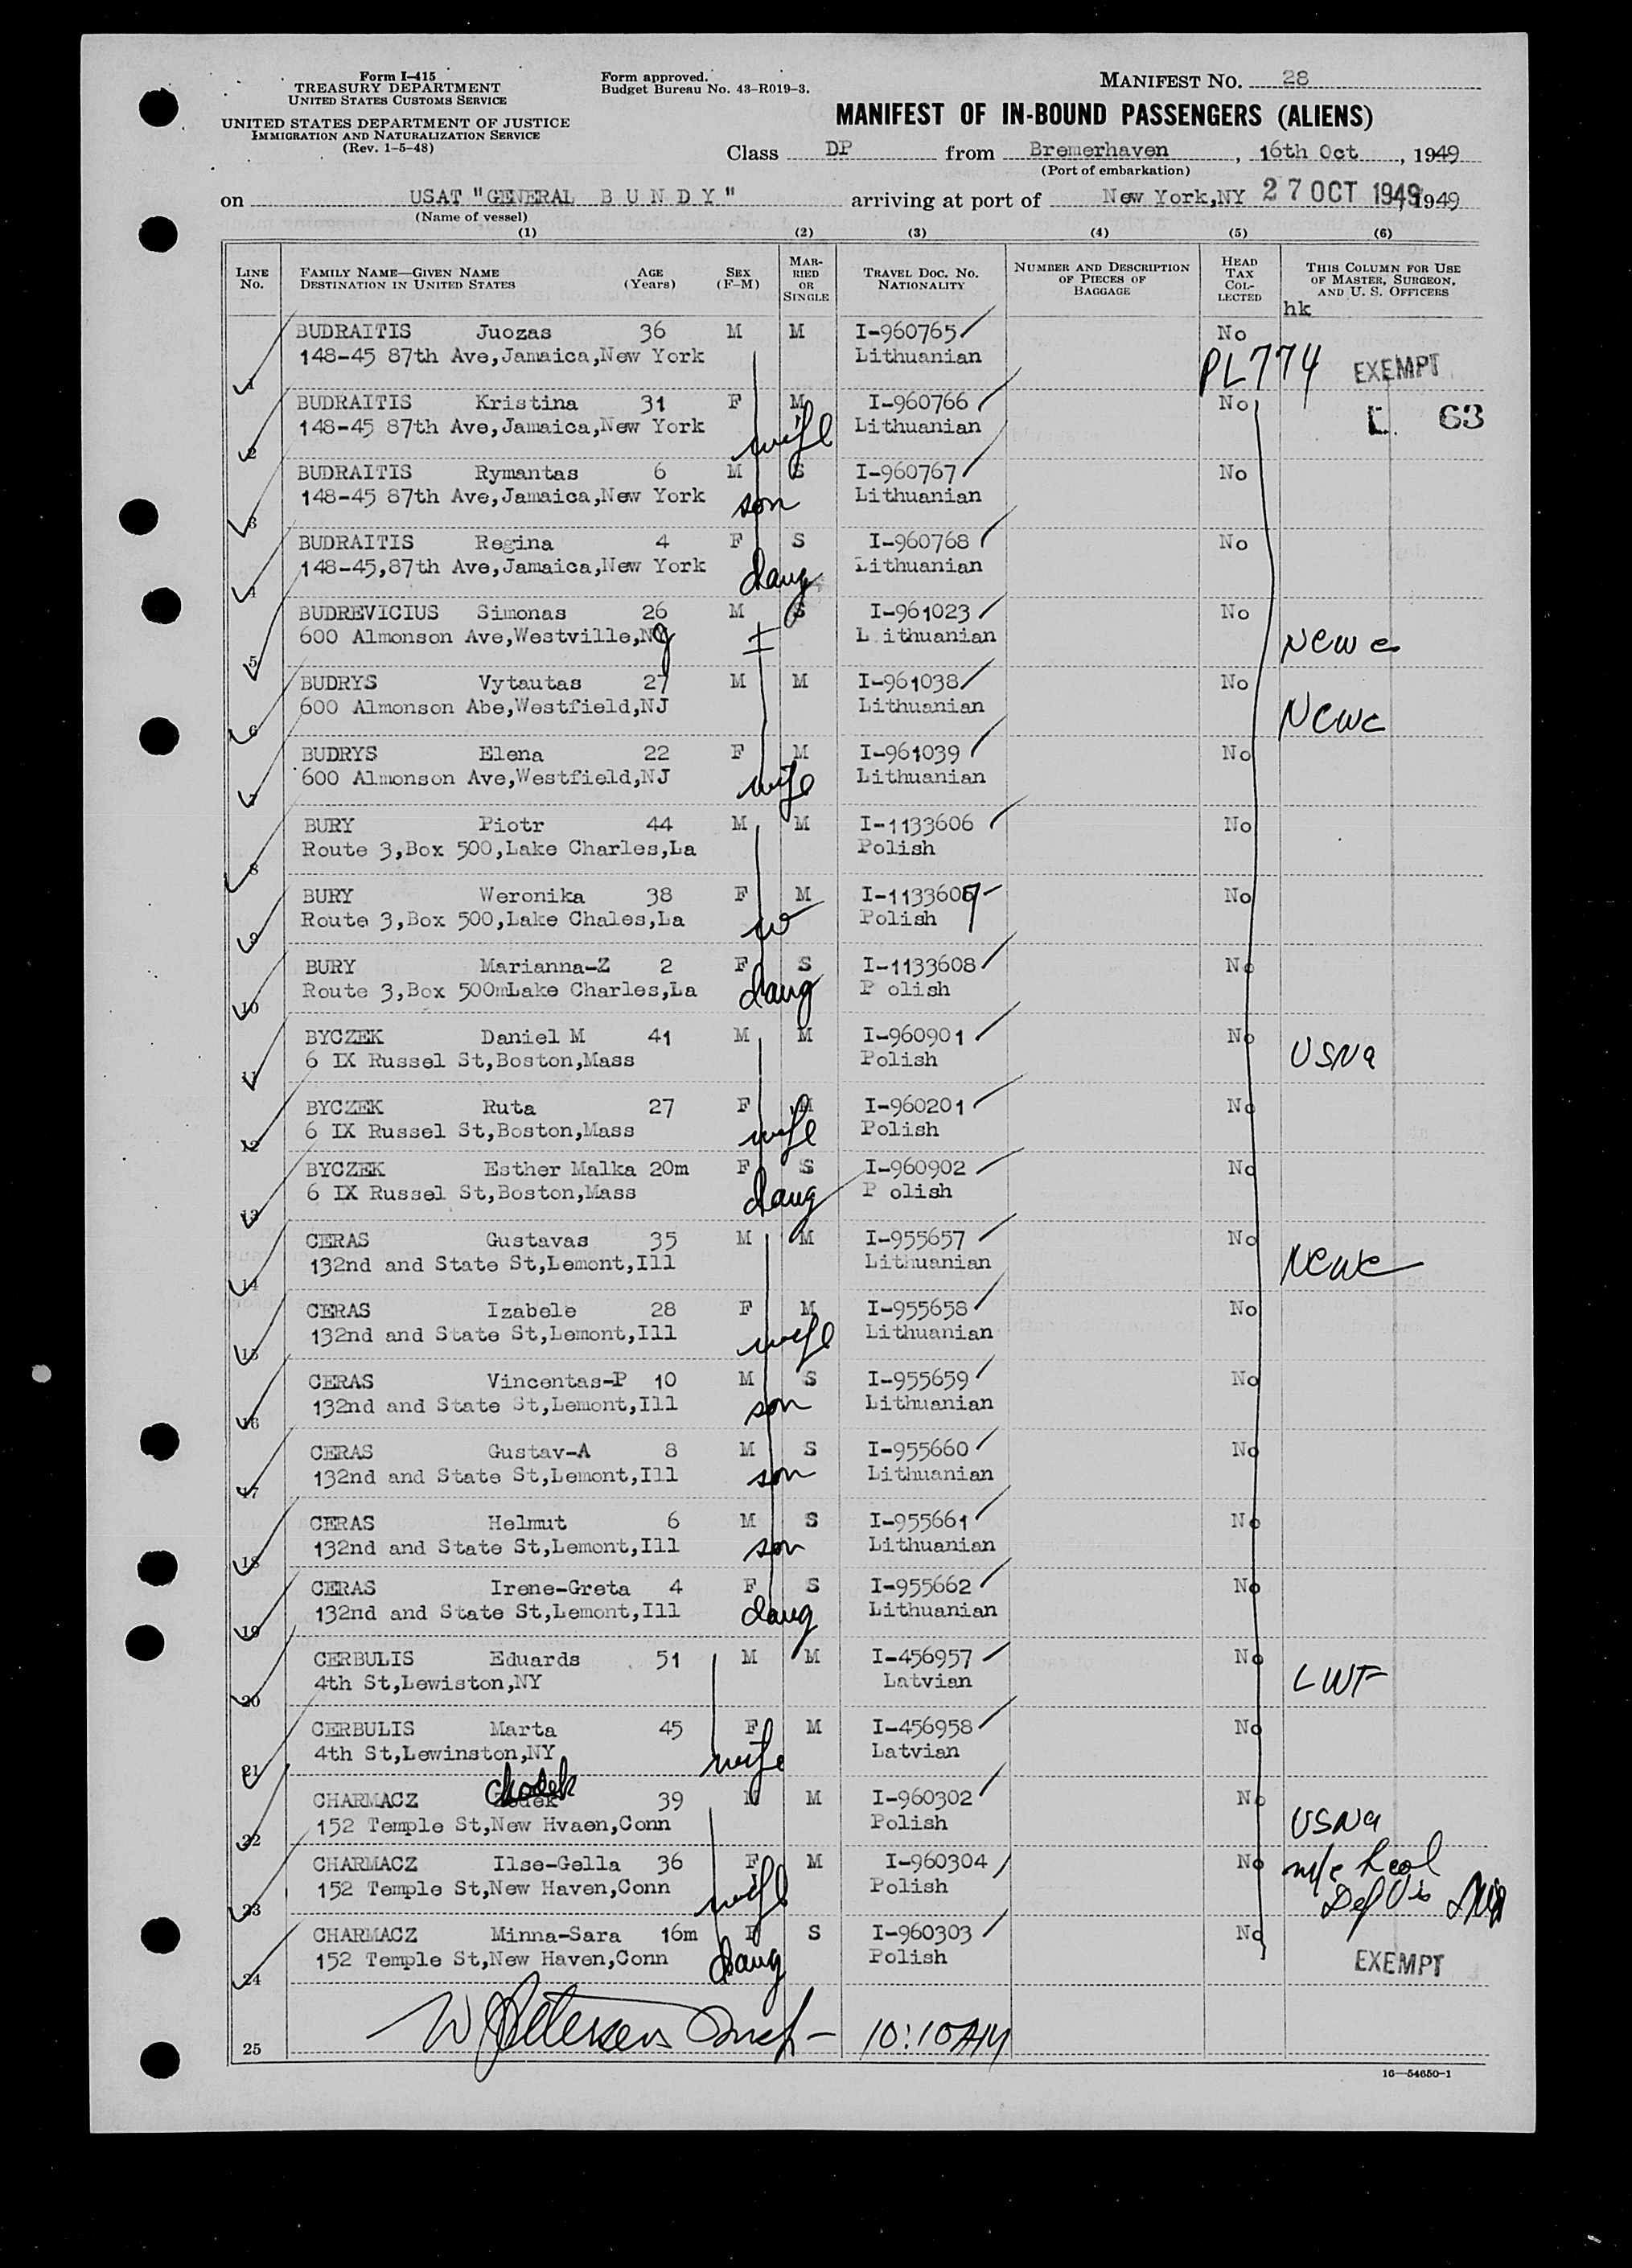 Form I-415
TREASURY DEPARTMENT
UNITED STATES CUSTOMS SERVICE
UNITED STATES DEPARTMENT OF JUSTICE
IMMIGRATION AND NATURALIZATION SERVICE
(Rev. 1-5-48)
Form approved.
Budget Bureau No. 43-R019-3.
MANIFEST NO. 28
MANIFEST OF IN-BOUND PASSENGERS (ALIENS)
Class DP from Bremerhaven, 16th Oct, 1949
(Port of embarkation)
on USAT "GENERAL B U N D Y" arriving at port of New York,NY 27 OCT 1949, 1949
(Name of vessel)
(1) (2) (3) (4) (5) (6)
LINE NO. FAMILY NAME—GIVEN NAME DESTINATION IN UNITED STATES AGE (Years) SEX (F-M) MARRIED OR SINGLE TRAVEL DOC. NO. NATIONALITY NUMBER AND DESCRIPTION OF PIECES OF BAGGAGE HEAD TAX COLLECTED THIS COLUMN FOR USE OF MASTER, SURGEON, AND U. S. OFFICERS
hk
BUDRAITIS Juozas 36 M M I-960765 No
1 148-45 87th Ave,Jamaica,New York Lithuanian PL774 EXEMPT
BUDRAITIS Kristina 31 F M I-960766 No 63
2 148-45 87th Ave,Jamaica,New York wife Lithuanian
BUDRAITIS Rymantas 6 M S I-960767 No
3 148-45 87th Ave,Jamaica,New York son Lithuanian
BUDRAITIS Regina 4 F S I-960768 No
4 148-45,87th Ave,Jamaica,New York daug Lithuanian
BUDREVICIUS Simonas 26 M S I-961023 No
5 600 Almonson Ave,Westville,NJ L ithuanian NCWC
BUDRYS Vytautas 27 M M I-961038 No
6 600 Almonson Abe,Westfield,NJ Lithuanian NCWC
BUDRYS Elena 22 F M I-961039 No
7 600 Almonson Ave,Westfield,NJ wife Lithuanian
BURY Piotr 44 M M I-1133606 No
8 Route 3,Box 500,Lake Charles,La Polish
BURY Weronika 38 F M I-1133607 No
9 Route 3,Box 500,Lake Chales,La w Polish
BURY Marianna-Z 2 F S I-1133608 No
10 Route 3,Box 500mLake Charles,La daug P olish
BYCZEK Daniel M 41 M M I-960901 No
11 6 IX Russel St,Boston,Mass Polish USNA
BYCZEK Ruta 27 F M I-960201 No
12 6 IX Russel St,Boston,Mass wife Polish
BYCZEK Esther Malka 20m F S I-960902 No
13 6 IX Russel St,Boston,Mass daug P olish
CERAS Gustavas 35 M M I-955657 No
14 132nd and State St,Lemont,Ill Lithuanian NCWC
CERAS Izabele 28 F M I-955658 No
15 132nd and State St,Lemont,Ill wife Lithuanian
CERAS Vincentas-P 10 M S I-955659 No
16 132nd and State St,Lemont,Ill son Lithuanian
CERAS Gustav-A 8 M S I-955660 No
17 132nd and State St,Lemont,Ill son Lithuanian
CERAS Helmut 6 M S I-955661 No
18 132nd and State St,Lemont,Ill son Lithuanian
CERAS Irene-Greta 4 F S I-955662 No
19 132nd and State St,Lemont,Ill daug Lithuanian
CERBULIS Eduards 51 M M I-456957 No
20 4th St,Lewiston,NY Latvian LWF
CERBULIS Marta 45 F M I-456958 No
21 4th St,Lewinston,NY wife Latvian
Chodek
CHARMACZ 39 M M I-960302 No
22 152 Temple St,New Hvaen,Conn Polish USNA
CHARMACZ Ilse-Gella 36 F M I-960304 No
23 152 Temple St,New Haven,Conn wife Polish Def Vis
CHARMACZ Minna-Sara 16m F S I-960303 No
24 152 Temple St,New Haven,Conn daug Polish EXEMPT
25 10:10 AM
16—54650-1